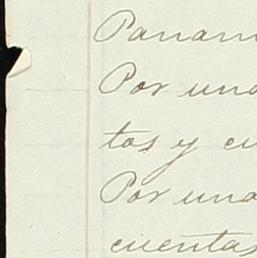 Panam
Por una
tos y cu
Por una
cuentas